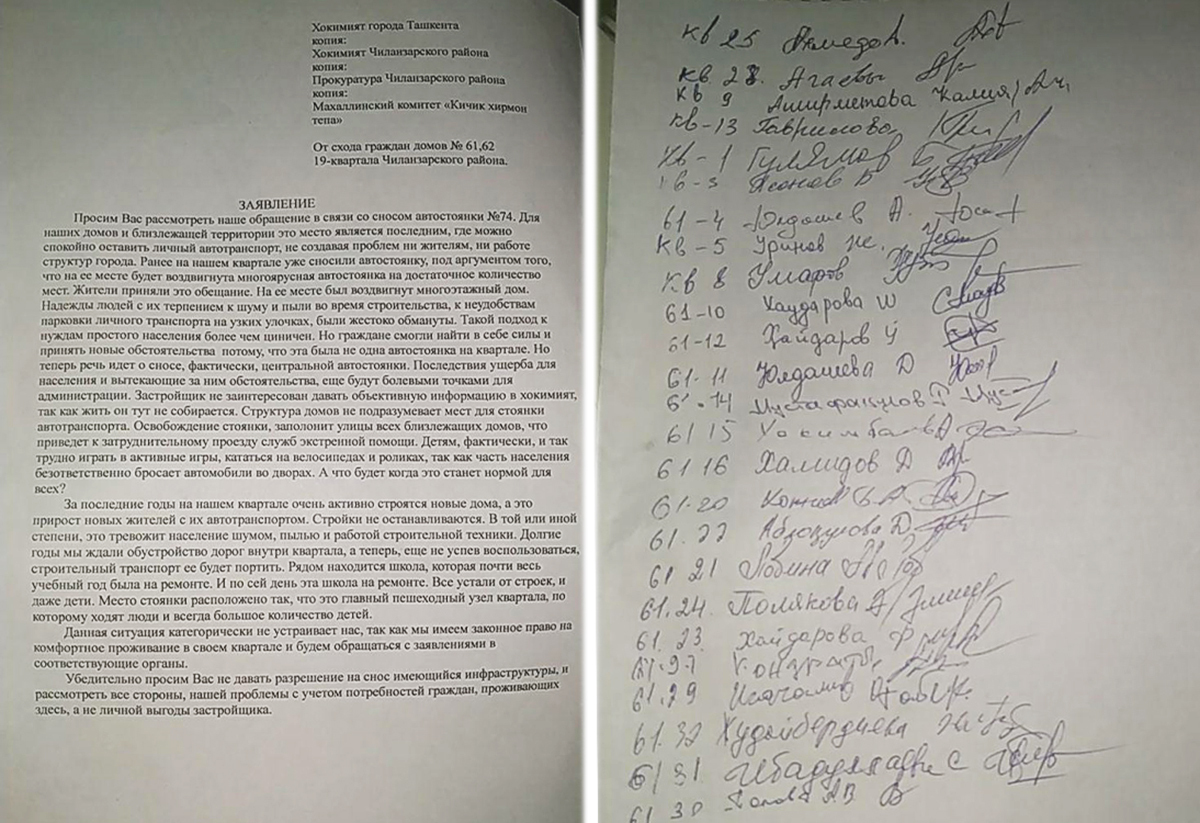 Хокимият города Ташкента
копия:
Хокимият Чиланзарского района
копия:
Прокуратура Чиланзарского района
копия:
Махаллинский комитет «Кичик хирмон
тепа»
От схода граждан домов № 61,62
19-квартала Чиланзарского района.
ЗАЯВЛЕНИЕ
Просим Вас рассмотреть наше обращение в связи со сносом автостоянки №74. Для
наших домов и близлежащей территории это место является последним, где можно
спокойно оставить личный автотранспорт, не создавая проблем ни жителям, ни работе
структур города. Ранее на нашем квартале уже сносили автостоянку, под аргументом того,
что на ее месте будет воздвигнута многоярусная автостоянка на достаточное количество
мест. Жители приняли это обещание. На ее месте был воздвигнут многоэтажный дом.
Надежды людей с их терпением к шуму и пыли во время строительства, к неудобствам
парковки личного транспорта на узких улочках, были жестоко обмануты. Такой подход к
нуждам простого населения более чем циничен. Но граждане смогли найти в себе силы и
принять новые обстоятельства потому, что эта была не одна автостоянка на квартале. Но
теперь речь идет о сносе, фактически, центральной автостоянки. Последствия ущерба для
населения и вытекающие за ним обстоятельства, еще будут болевыми точками для
администрации. Застройщик не заинтересован давать объективную информацию в хокимият,
так как жить он тут не собирается. Структура домов не подразумевает мест для стоянки
автотранспорта. Освобождение стоянки, заполонит улицы всех близлежащих домов, что
приведет к затруднительному проезду служб экстренной помощи. Детям, фактически, и так
трудно играть в активные игры, кататься на велосипедах и роликах, так как часть населения
безответственно бросает автомобили во дворах. А что будет когда это станет нормой для
всех?
За последние годы на нашем квартале очень активно строятся новые дома, а это
прирост новых жителей с их автотранспортом. Стройки не останавливаются. В той или иной
степени, это тревожит население шумом, пылью и работой строительной техники. Долгие
годы мы ждали обустройство дорог внутри квартала, а теперь, еще не успев воспользоваться,
строительный транспорт ее будет портить. Рядом находится школа, которая почти весь
учебный год была на ремонте. И по сей день эта школа на ремонте. Все устали от строек, и
даже дети. Место стоянки расположено так, что это главный пешеходный узел квартала, по
которому ходят люди и всегда большое количество детей.
Данная ситуация категорически не устраивает нас, так как мы имеем законное право на
комфортное проживание в своем квартале и будем обращаться с заявлениями в
соответствующие органы.
Убедительно просим Вас не давать разрешение на снос имеющийся инфраструктуры, и
рассмотреть все стороны, нашей проблемы с учетом потребностей граждан, проживающих
здесь, а не личной выгоды застройщика.
кв 25 Ахмедов.
кв 28. Агаевы
кв 9 Аширметова
кв-13 Гаврилова
кв-1 Гулямов Б
61-4 Юлдашев А.
кв-5 Уринов
кв 8 Умаров
61-10 Хаударова
61-12 Хайдаров
61-11 Юлдашева Д
61-14
61 15
61 16 Халидов Д
61-20
61. 22
61 21
61.24. Полякова
61.23. Хайдарова Ф
61.29
61.32 Худойбердиева
61 31
61 30